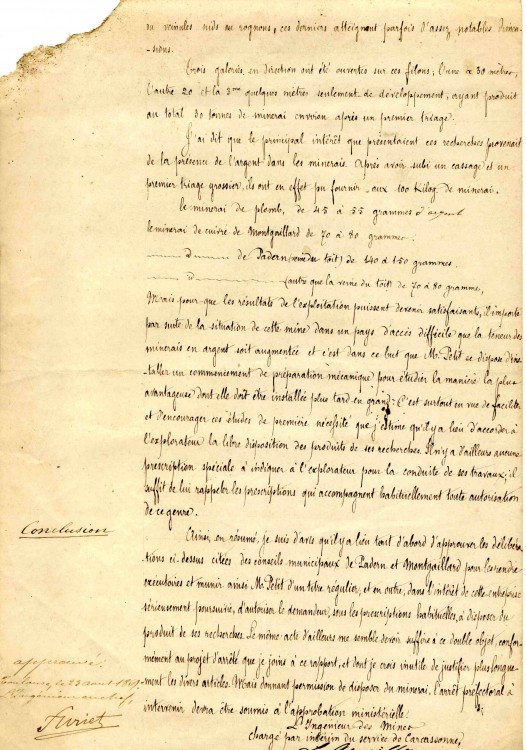 ou veinules nids ou rognons, ces derniers atteignent parfois d'assez notables dimen-
sions.
Trois galeries en direction ont été ouvertes sur ces filons; l'une a 30 mètres,
l'autre 20 et la 3me quelques mètres seulement de développement, ayant produit
au total 30 tonnes de minerai environ après un premier triage.
J'ai dit que le principal intérêt que présentaient ces recherches provenait
de la présence de l'argent dans les minerais. Après avoir subi un cassage et un
premier triage grossier, ils ont en effet pu fournir, aux 100 Kilog. de minerai.
le minerai de plomb, de 45 à 55 grammes d'argent
le minerai de cuivre de Montgaillard de 70 à 80 grammes.
D° de Padern (veine du toit) de 140 à 150 grammes.
D° (autre que la veine du toit) de 70 à 80 gramme,
Mais pour que les résultats de l'exploitation puissent devenir satisfaisants, il importe
par suite de la situation de cette mine dans un pays d'accès difficile que la teneur des
minerais en argent soit augmentée et c'est dans ce but que Mr. Petit se dispose d'ins-
taller un commencement de préparation mécanique pour étudier la manière la plus
avantageuse dont elle doit être installée plus tard en grand. C'est surtout en vue de faciliter
et d'encourager ces études de première nécessité que j'estime qu'il y a lieu d'accorder à
l'explorateur la libre disposition des produits de ses recherches. Il n'y a d'ailleurs aucune
prescription spéciale à indiquer à l'explorateur pour la conduite de ses travaux; il
suffit de lui rappeler les prescriptions qui accompagnent habituellement toute autorisation
de ce genre.
Conclusion
Ainsi, en résumé, je suis d'avis qu'il y a lieu tout d'abord d'approuver les délibéra-
tions ci-dessus citées des conseils municipaux de Padern et Montgaillard pour les rendre
exécutoires et munir ainsi Mr. Petit d'un titre régulier, et en outre, dans l'intérêt de cette entreprise
sérieusement poursuivie, d'autoriser le demandeur, sous les prescriptions habituelles, à disposer du
produit de ses recherches. Le même acte d'ailleurs me semble devoir suffire à ce double objet, confor-
mément au projet d'arrêté que je joins à ce rapport, et dont je crois inutile de justifier plus longue-
ment les divers articles. Mais donnant permission de disposer du minerai, l'arrêt préfectoral à
intervenir devra être soumis à l'approbation ministérielle.
approuvé.
L'Ingénieur des Mines
chargé par intérim du service de Carcassonne,